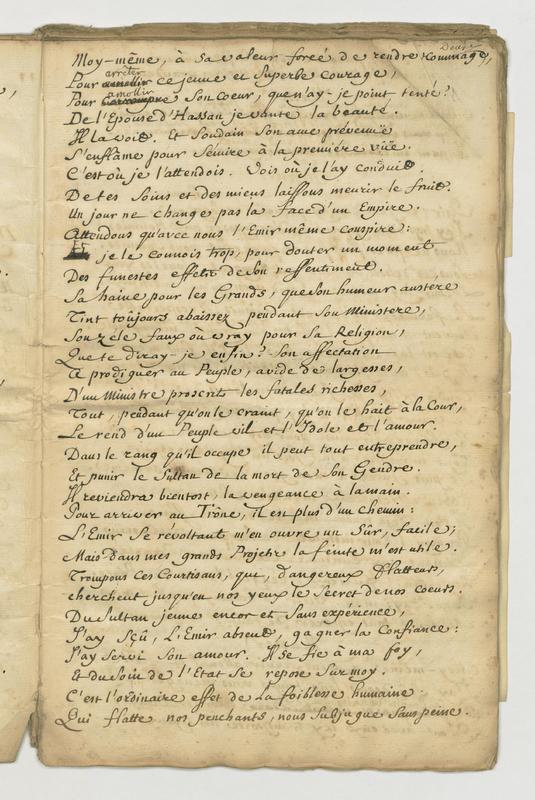 Deuse
Moy-même, à sa valeur forcé de rendre hommage,
arrêter
Pour amollir ce jeune et superbe courage,
amollir
Pour corrompre son coeur, que n'ay-je point tenté?
De l'Epouse d'Hassan je vante la beauté.
Il la voit. Et soudain son ame prévenuë
S'enflâme pour Sémire à la premiére vûë.
C'est où je l'attendois. Vois où je l'ay conduit.
De tes soins et des miens laissons meurir le fruit.
Un jour ne change pas la face d'un Empire.
Attendons qu'avec nous l'Emir même conspire:
je le connois trop, pour douter un moment
Des funestes effets de son ressentiment.
Sa haine pour les Grands, que son humeur austére
Tint toûjours abaissez pendant son Ministere,
Son zéle faux où vray pour sa Religion,
Que te diray-je enfin? Son affectation
A prodiguer au Peuple, avide de largesses,
D'un Ministre proscrit les fatales richesses,
Tout, pendant qu'on le craint, qu'on le hait à la Cour,
Le rend d'un Peuple vil et l'Idole et l'amour.
Dans le rang qu'il occupe il peut tout entreprendre,
Et punir le Sultan de la mort de son Gendre.
Il reviendra bientost, la vengeance à la main.
Pour arriver au Trône, il est plus d'un chemin:
L'Emir se révoltant m'en ouvre un sûr, facile;
Mais dans mes grands Projets la feinte m'est utile.
Trompons ces Courtisans, que, dangereux flatteurs,
cherchent jusqu'en nos yeux le secret de nos coeurs.
Du Sultan jeune encor et sans expérience,
J'ay sçû, l'Emir absent, gagner la confiance:
J'ay servi son amour. Il se fie à ma foy,
Et du soin de l'Etat se repose sur moy.
C'est l'ordinaire effet de la foiblesse humaine.
Qui flatte nos penchants, nous subjugue sans peine.